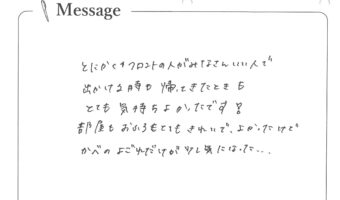 Message
とにかくフロントの人がみなさんいい人で
出かける時も帰ってきたときも
とても気持ちよかったです!
部屋もおふろもとてもきれいで、よかったけど
かべのよごれだけが少し気になった...